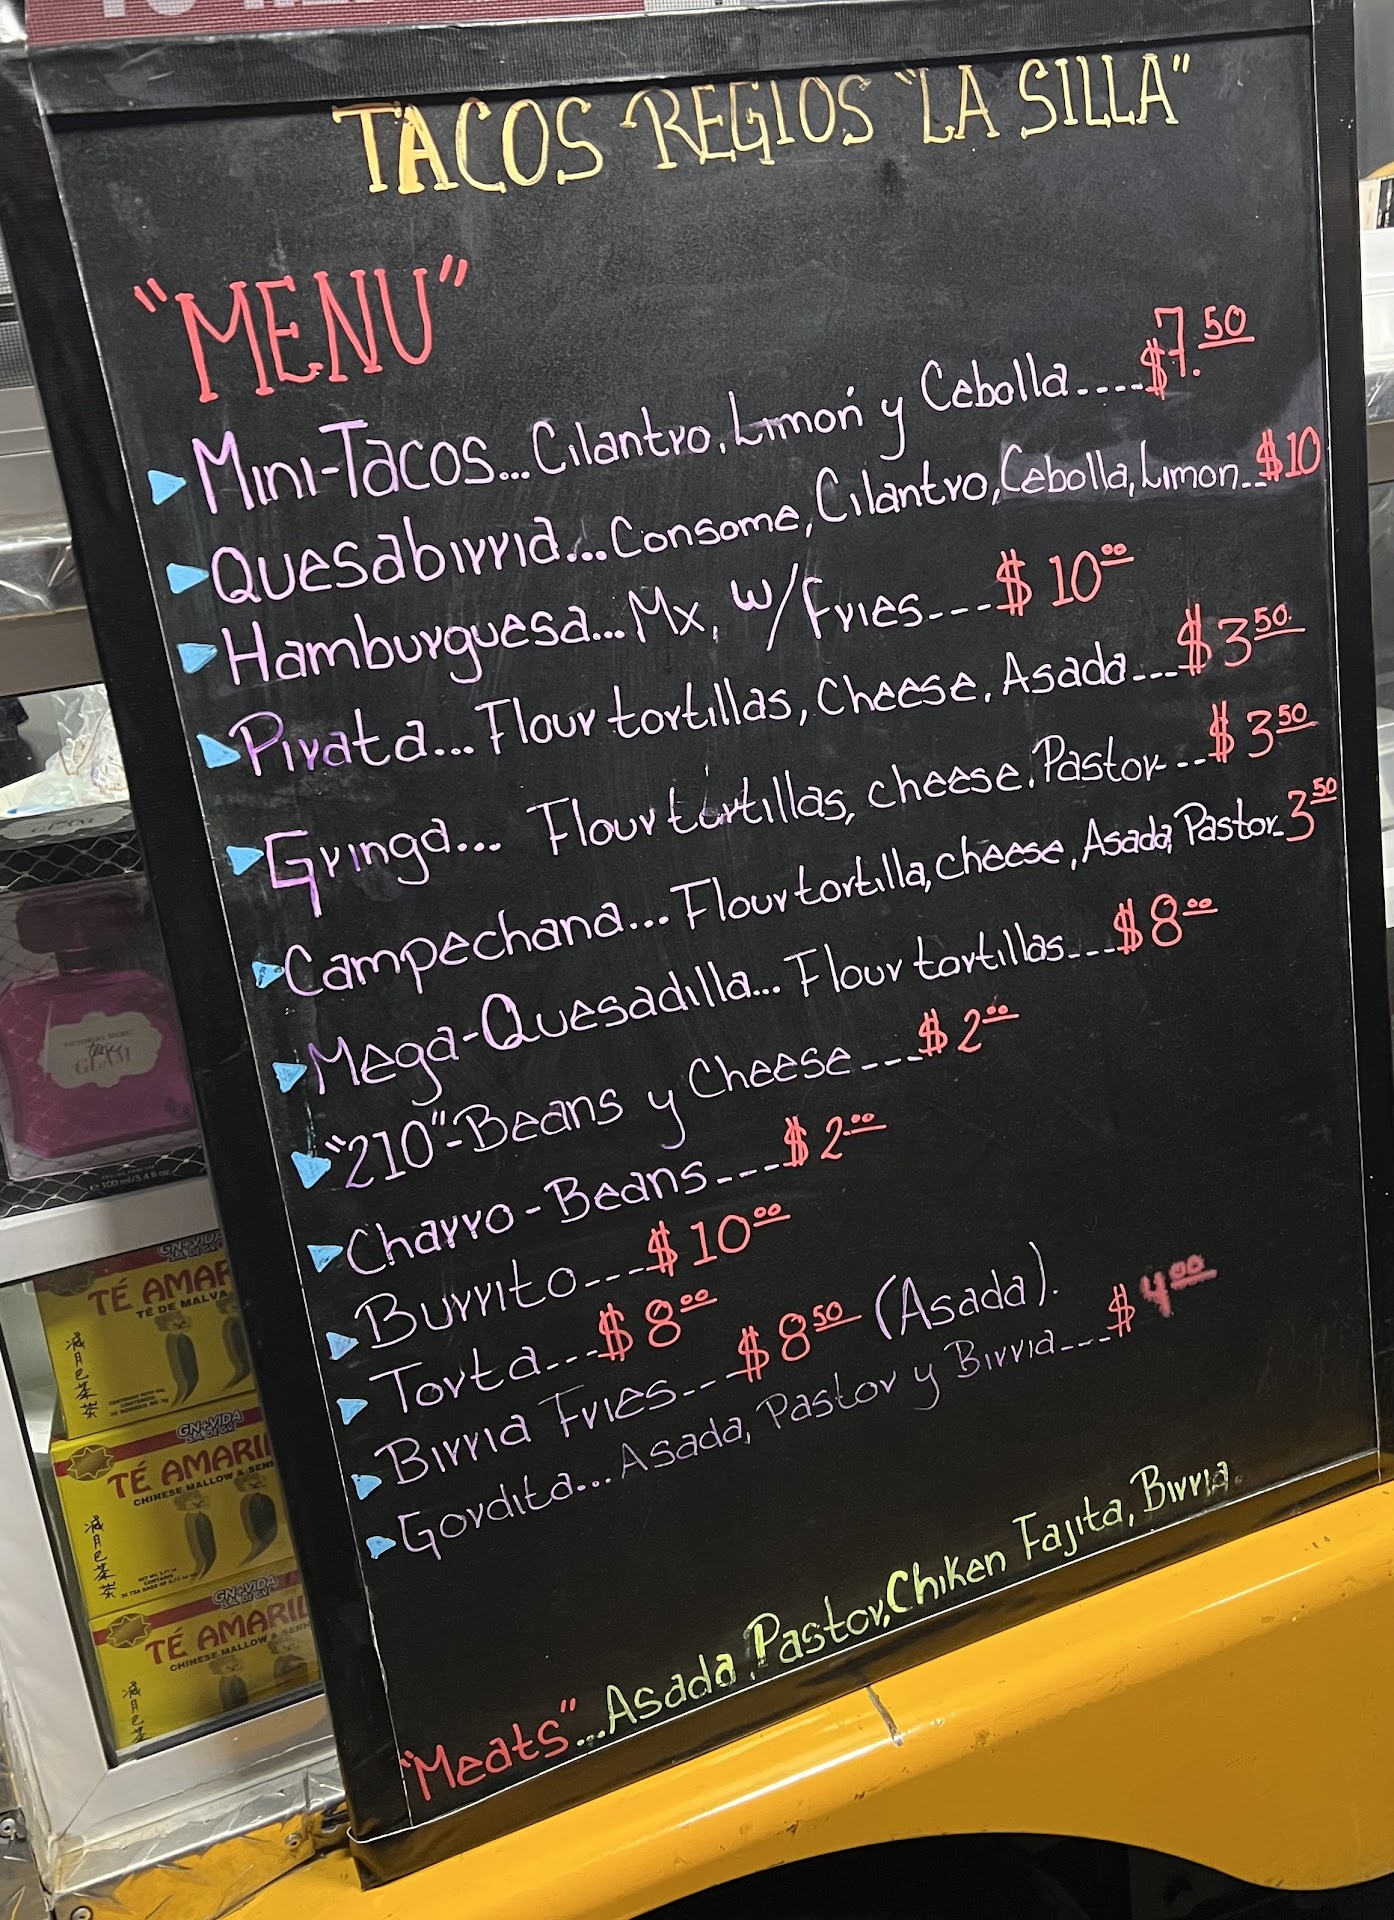 TACOS REGIOS "LA SILLA"
"MENU"
Mini-Tacos...Cilantro, Limón y Cebolla....$7.50
Quesabirria...Consome, Cilantro, Cebolla, Limon...$10
Hamburguesa...Mx, w/Fries...$10.00
Pirata...Flour tortillas, Cheese, Asada...$3.50
Gringa... Flour tortillas, cheese, Pastor...$3.50
Campechana...Flour tortilla, cheese, Asada, Pastor.3.50
Mega-Quesadilla...Flour tortillas...$8.00
"210"-Beans y Cheese...$2.00
Charro-Beans...$2.00
Burrito...$10.00
Torta...$8.00
Birria Fries...$8.50 (Asada).
Gordita...Asada, Pastor y Birria...$4.00
"Meats"...Asada, Pastor, Chiken Fajita, Birria.
VICTORIA'S SECRET
tease
GLAM
100 ml/3.4 fl oz
GN+VIDA
TÉ AMAR
TÉ DE MALVA
GN+VIDA
S.A. DE C.V.
TÉ AMARIL
CHINESE MALLOW & SEN
GN+VIDA
S.A. DE C.V.
TÉ AMARIL
CHINESE MALLOW & SENN